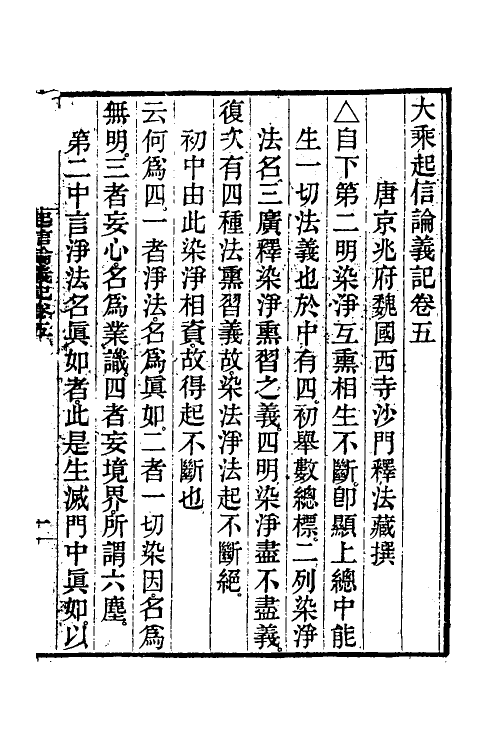 大乘起信論義記卷五
唐京兆府魏國西寺沙門釋法藏撰
△自下第二明染淨互熏相生不斷。卽顯上總中能
生一切法義也於中有四。初舉數總標。二列染淨
法名三廣釋染淨熏習之義。四明染淨盡不盡義。
復次有四種法熏習義故。染法淨法起不斷絕。
初中由此染淨相資。故得起不斷也
云何爲四一者淨法。名爲眞如。二者一切染因。名爲
無明。三者妄心。名爲業識。四者妄境界。所謂六塵。
第二中言淨法名眞如者。此是生滅門中眞如。以
起信論義記卷五